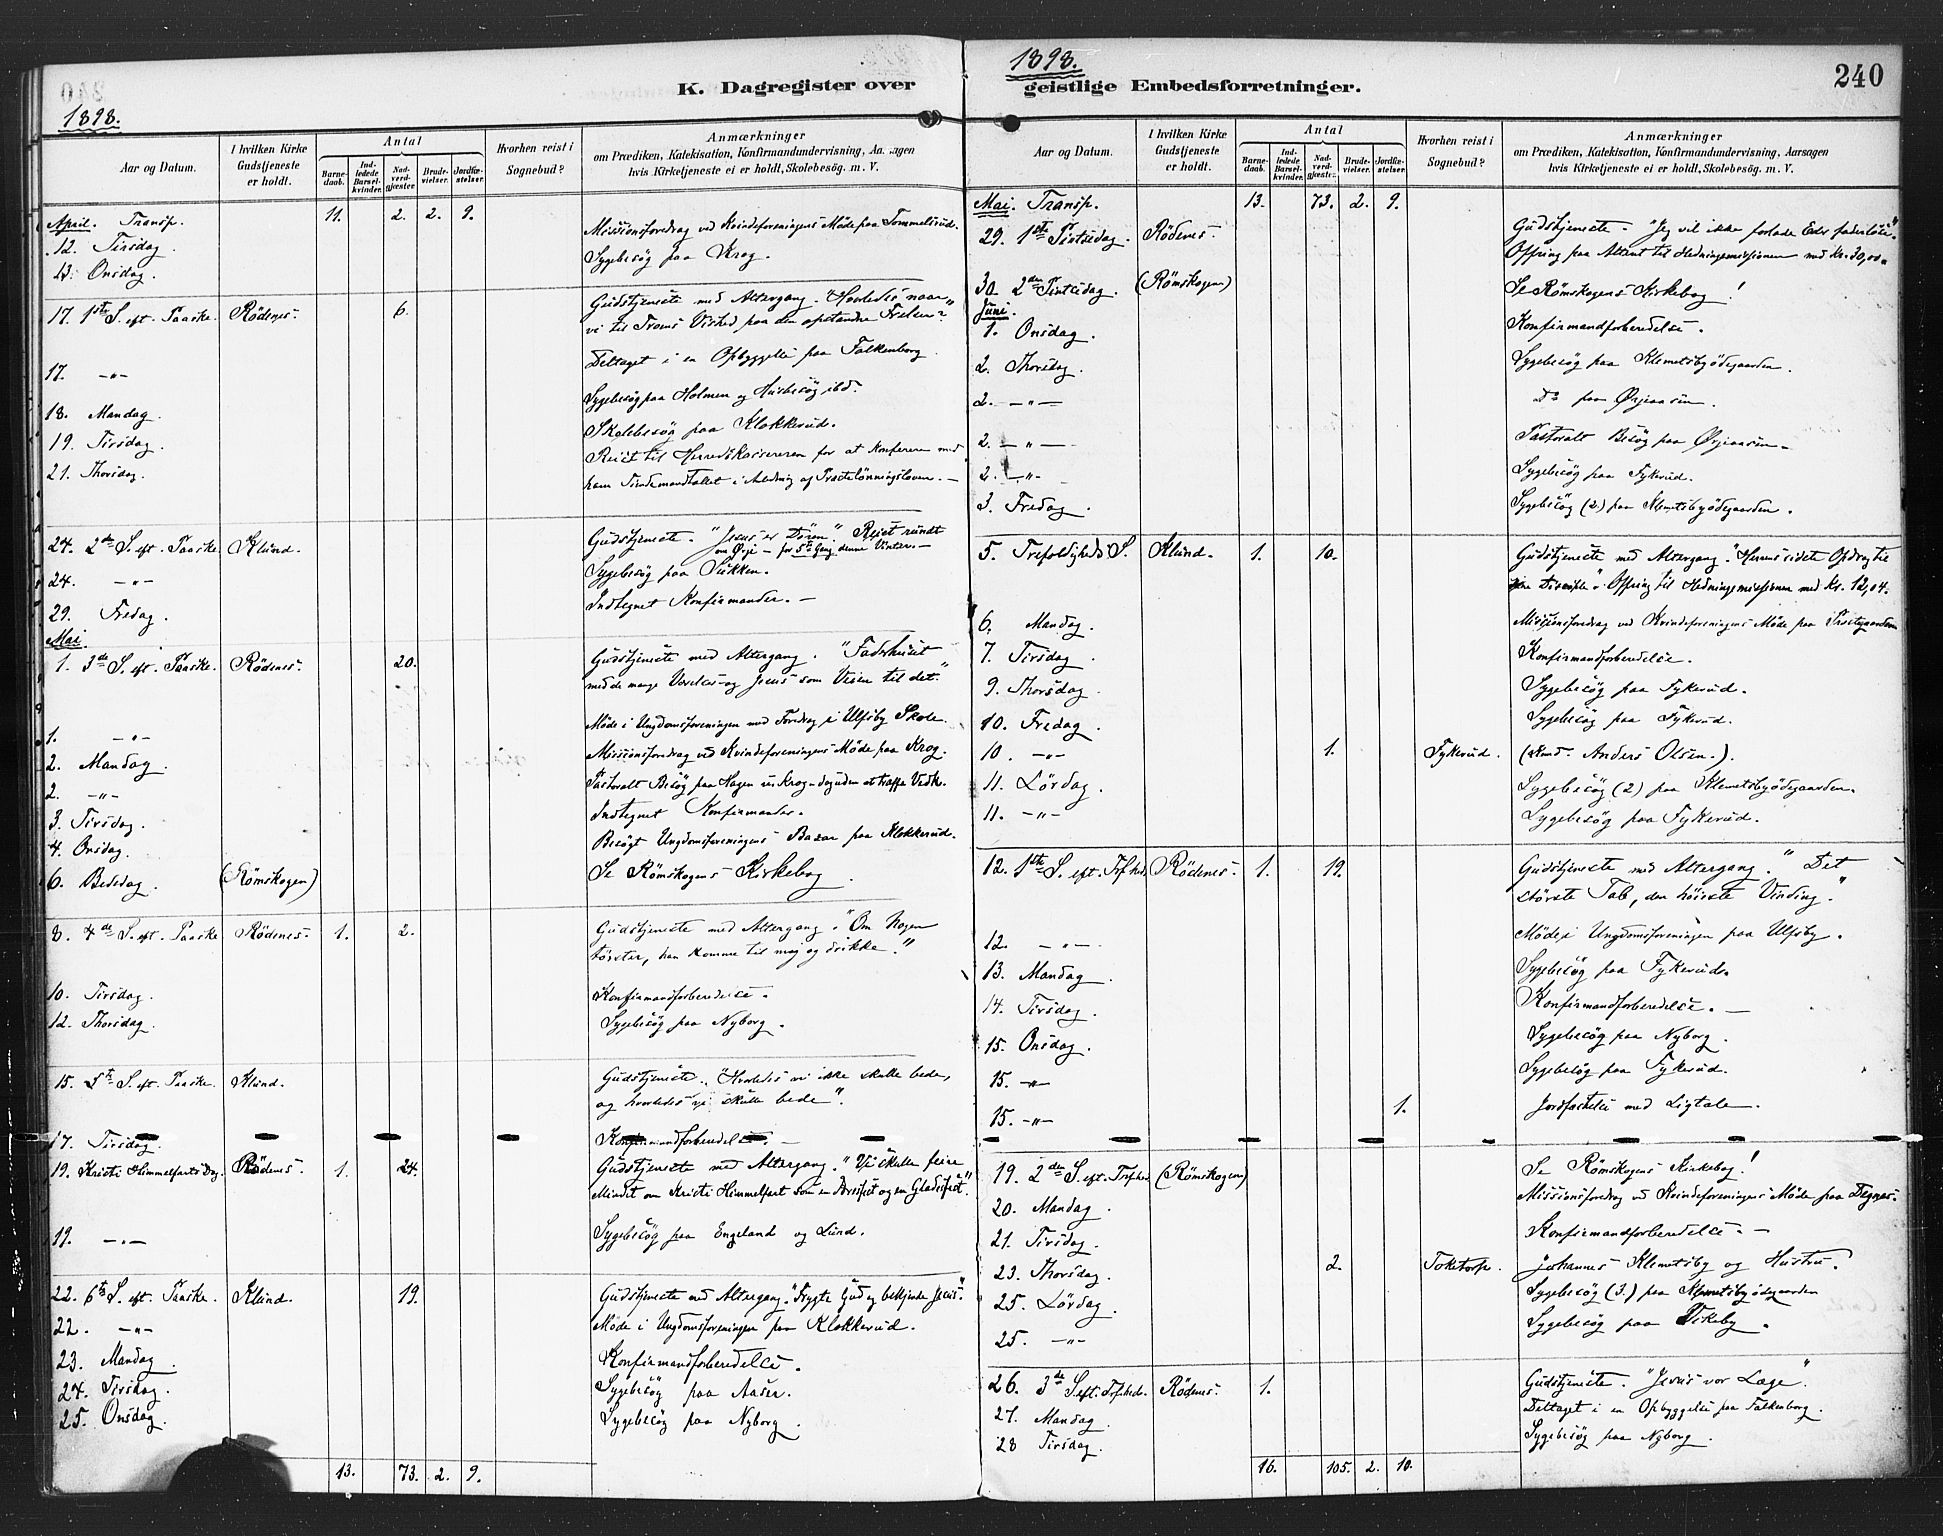 1898.
K. Dagregister over
1898.
geistlige Embedsforretninger.
240
Aar og Datum.
I hvilken Kirke Gudstjeneste er holdt.
Antal
Barnedaab.
Indledede Barselkvinder.
Nadverdgjæster.
Brudevielser.
Jordfæstelser.
Hvorhen reist i Sognebud?
Anmærkninger
om Prædiken, Katekisation, Konfirmandundervisning, Aarsagen
hvis Kirketjeneste ei er holdt, Skolebesøg. m. V.
April. Transp. 11. 2. 2. 9.
12. Tirsdag. Missionsforedrag ved Kvindeforeningens Møde paa Tommelsrud.
13. Onsdag. Sygebesøg paa Krog.
17. 1ste S. eft. Paaske. Rødenes. 6. Gudstjeneste med Altergang. "Hvorledes naar
vi til Troens Vished paa den opstandne Frelser?"
17. -"- Deltaget i en Opbyggelse paa Falkenborg.
18. Mandag. Sygebesøg paa Holmen og Husbesøg ibd.
19. Tirsdag. Skolebesøg paa Klokkerud.
21. Thorsdag. Reist til Herredskassereren for at konferere med
ham Tiendemandtallet i Anledning af Præstelønningsloven. -
24. 2den S. eft. Paaske. Klund. Gudstjeneste. "Jesus er Døren". Reist rundt
om Ørje - for 5te Gang denne Vinter. -
24. -"- Sygebesøg paa Sukken.
29. Fredag. Indtegnet Konfirmander. -
Mai.
1. 3de S. eft. Paaske. Rødenes. 20. Gudstjeneste med Altergang. "Faderhuset
med de mange Værelser og Jesus som Veien til det."
1. -"- Møde i Ungdomsforeningen med Foredrag i Ulfsby Skole.
2. Mandag. Missionsforedrag ved Kvindeforeningens Møde paa Krog.
2. -"- Pastoralt Besøg paa Hagen ved Krog - dog uden at træffe Vedk.
3. Tirsdag. Indtegnet Konfirmander.
4. Onsdag. Besøgt Ungdomsforeningens Bazar paa Klokkerud.
6. Bededag. (Rømskogen) Se Rømskogens Kirkebog.
8. 4de S. eft. Paaske Rødenes. 1. 2. Gudstjeneste med Altergang. "Om Nogen
tørster, han komme til mig og drikke."
10. Tirsdag. Konfirmandforberedelse.
12. Thorsdag. Sygebesøg paa Nyborg.
15. 5te S. eft. Paaske. Klund. Gudstjeneste. "Hvorledes vi ikke skulle bede,
og hvorledes vi skulle bede".
17. Tirsdag. Konfirmandforberedelse. -
19. Kristi Himmelfarts Dag. Rødenes. 1. 24. Gudstjeneste med Altergang. "Vi skulle feire
Mindet om Kristi Himmelfart som en Porsfest og en Gladesfest."
19. -"- Sygebesøg paa Engeland og Lund.
22. 6te S. eft. Paaske. Klund. 19. Gudstjeneste med Altergang. "Frygte Gud og bekjende Jesus."
22. -"- Møde i Ungdomsforeningen paa Klokkerud.
23. Mandag. Konfirmandforberedelse.
24. Tirsdag. Sygebesøg paa Aasen.
25. Onsdag. Sygebesøg paa Nyborg.
13. 73. 2. 9.
Aar og Datum.
I hvilken Kirke Gudstjeneste er holdt.
Antal
Barnedaab.
Indledede Barselkvinder.
Nadverdgjæster.
Brudevielser.
Jordfæstelser.
Hvorhen reist i Sognebud?
Anmærkninger
om Prædiken, Katekisation, Konfirmandundervisning, Aarsagen
hvis Kirketjeneste ei er holdt, Skolebesøg. m. V.
Mai. Transp. 13. 73. 2. 9.
29. 1ste Pintsedag. Rødenes. Gudstjeneste. "Jeg vil ikke forlade Eder faderløse".
Offring paa Alteret til Hedningemissionen med Kr. 30,00.
30. 2den Pintsedag. (Rømskogen) Se Rømskogens Kirkebog!
Juni.
1. Onsdag. Konfirmandforberedelse.
2. Thorsdag. Sygebesøg paa Klemetsbyødegaarden.
2. -"- Do paa Ørjeaasen.
2. -"- Pastoralt Besøg paa Ørjeaasen.
2. -"- Sygebesøg paa Fykerud.
3. Fredag. Sygebesøg (2) paa Klemetsbyødegaarden.
5. Trefoldigheds S. Klund. 1. 10. Gudstjeneste med Altergang. "Herrens sidste Opdrag til
sine Disciple". Offring til Hedningemissionen med Kr. 12,04.
6. Mandag. Missionsforedrag ved Kvindeforeningens Møde paa Præstegaarden
7. Tirsdag. Konfirmandforberedelse.
9. Thorsdag. Sygebesøg paa Fykerud.
10. Fredag. Sygebesøg paa Fykerud.
10. -"- 1. Fykerud. (Kmd. Anders Olsen.)
11. Lørdag. Sygebesøg (2) paa Klemetsbyødegaarden.
11. -"- Sygebesøg paa Fykerud.
12. 1ste S. eft. Trfhed. Rødenes. 1. 19. Gudstjeneste med Altergang. "Det
største Tab, den høieste Vinding."
12. -"- Møde i Ungdomsforeningen paa Ulfsby.
13. Mandag. Sygebesøg paa Fykerud.
14. Tirsdag. Konfirmandforberedelse. -
15. Onsdag. Sygebesøg paa Nyborg.
15. -"- Sygebesøg paa Fykerud.
15. -"- 1. Jordfæstelse med Ligtale.
19. 2den S. eft. Trfhed. (Rømskogen) Se Rømskogens Kirkebog!
20. Mandag. Missionsforedrag ved Kvindeforeningens Møde paa Degnes.
21. Tirsdag. Konfirmandforberedelse. -
23. Thorsdag. 2. Toketorp. Johannes Klemetsby og Hustru.
25. Lørdag. Sygebesøg (3.) paa Klemetsbyødegaarden
25. -"- Sygebesøg paa Vikeby.
26. 3de S. eft. Trfhed. Rødenes. 1. Gudstjeneste. "Jesus vor Læge".
27. Mandag. Deltaget i en Opbyggelse paa Falkenborg.
28 Tirsdag. Sygebesøg paa Nyborg.
16. 105. 2. 10.